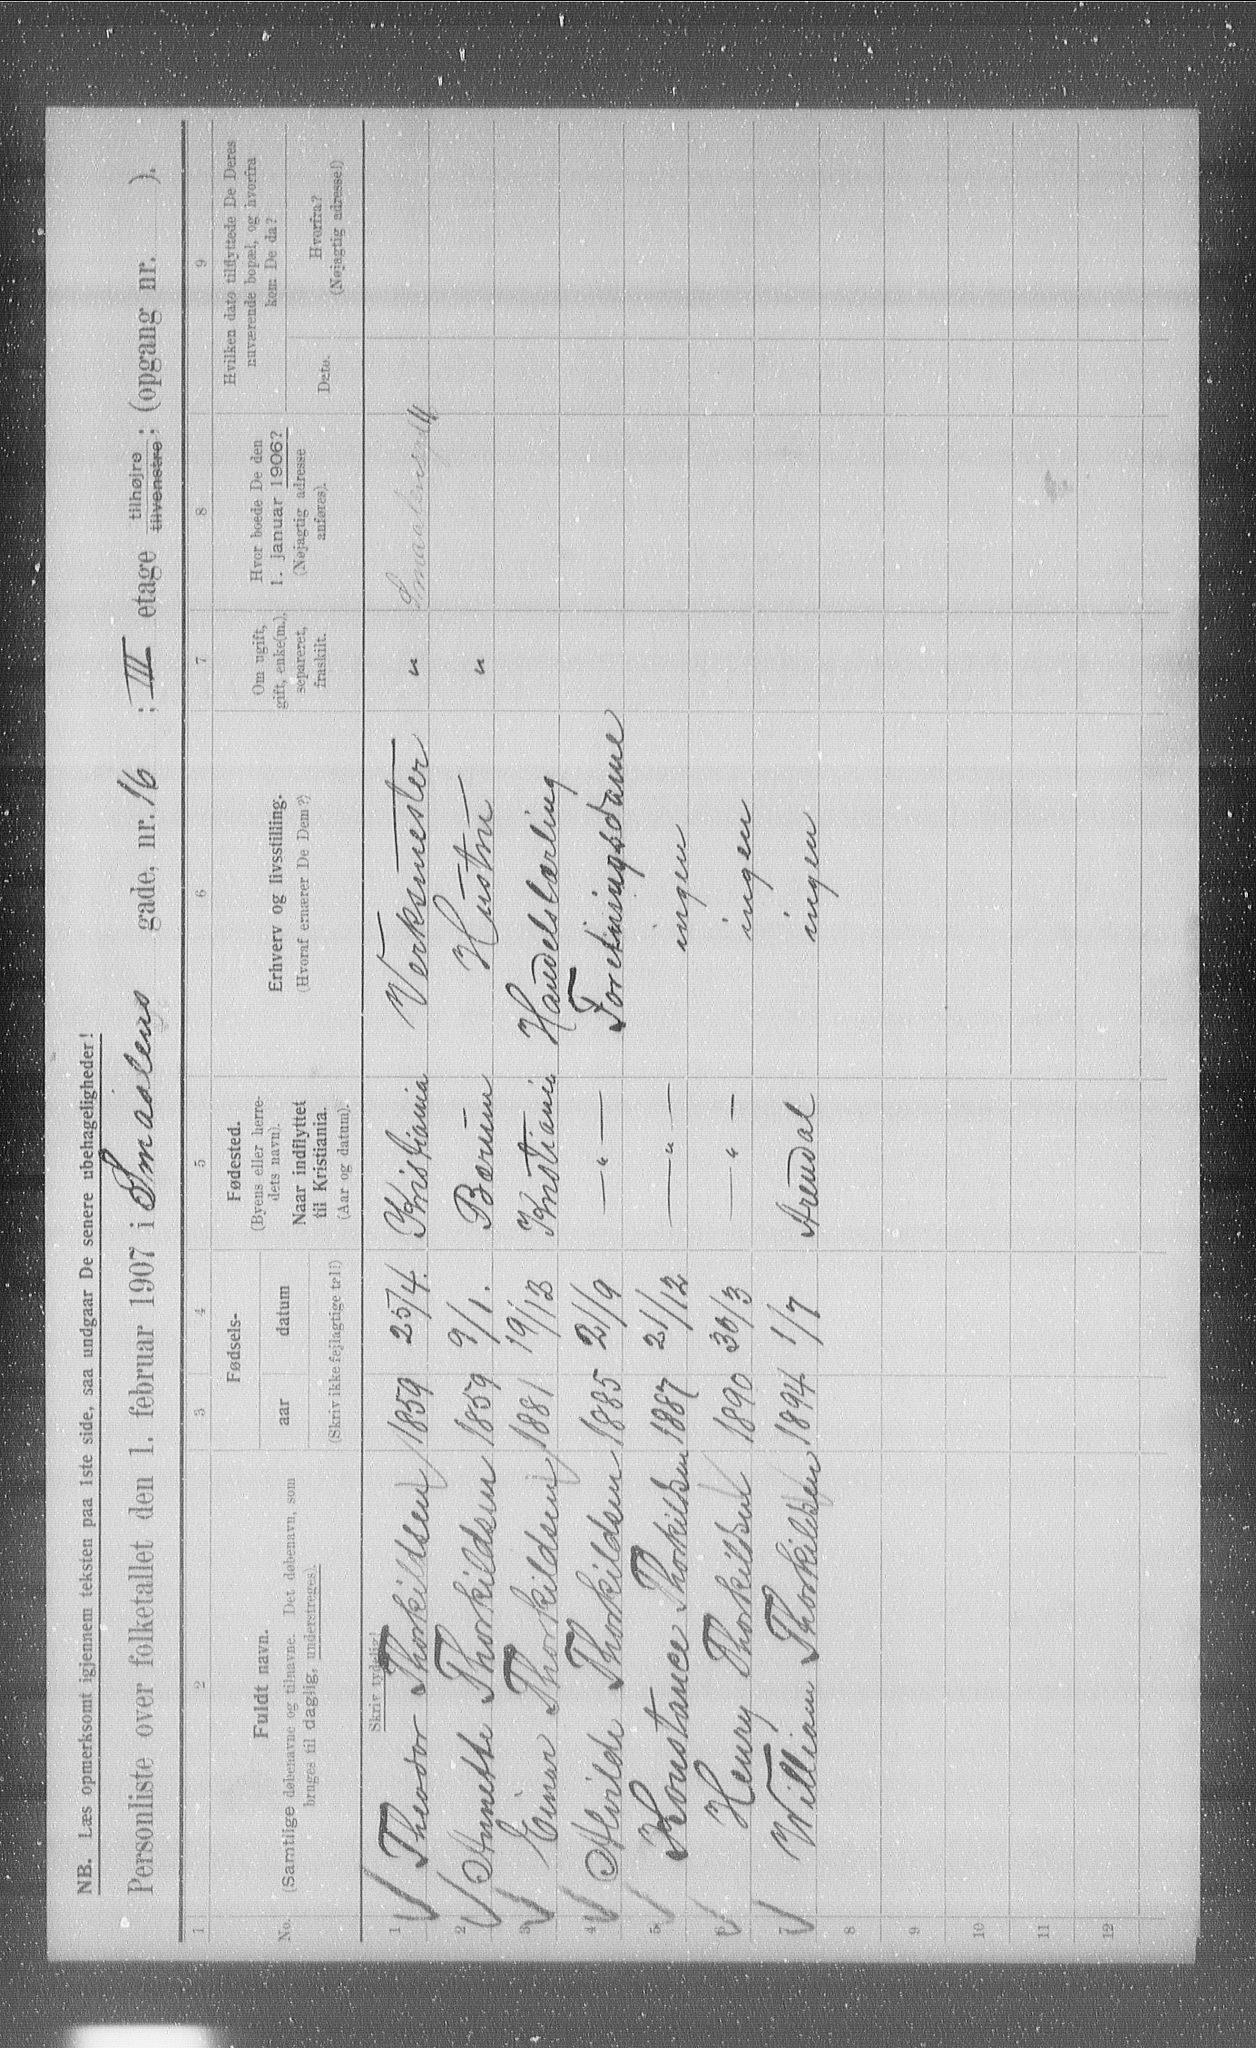 NB. Læs opmerksomt igjennem teksten paa 1ste side, saa undgaar De senere ubehageligheder!
Personliste over folketallet den 1. februar 1907 i Smaalens gade, nr. 16 ; III etage tilhøjre tilvenstre; (opgang nr. ).
1 2 3 4 5 6 7 8 9
No. Fuldt navn. (Samtlige døbenavne og tilnavne. Det døbenavn, som bruges til daglig, understreges). Fødsels- aar datum (Skriv ikke fejlagtige tal!) Fødested. (Byens eller herredets navn). Naar indflyttet til Kristiania. (Aar og datum). Erhverv og livsstilling. (Hvoraf ernærer De Dem?) Om ugift, gift, enke(m.), separeret, fraskilt. Hvor boede De den 1. januar 1906? (Nøjagtig adresse anføres). Hvilken dato tilflyttede De Deres nuværende bopæl, og hvorfra kom De da? Dato. Hvorfra? (Nøjagtig adresse!)
Skriv tydelig!
1 Theodor Thorkildsen 1859 25/4. Kristiania Verksmester "
2 Annette Thorkildsen 1859 9/1. Bærum Hustru "
3 Einar Thorkildsen 1881 19/12 Kristiania Handelslærling
4 Alvilde Thorkildsen 1885 21/9 — " — Foretningsdame
5 Konstance Thorkildsen 1887 21/12 — " — ingen
6 Henry Thorkildsen 1890 30/3 — " — ingen
7 William Thorkildsen 1894 1/7 Arendal ingen
8
9
10
11
12